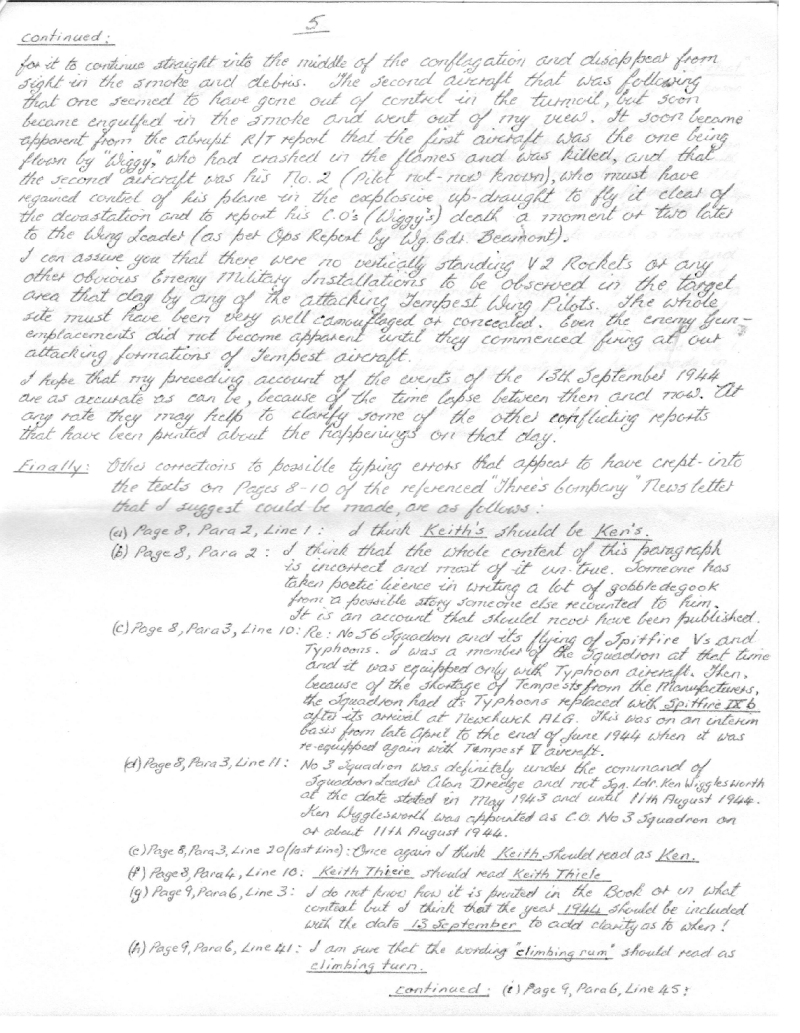 5
continued:
for it to continue straight into the middle of the conflagation and disappear from
sight in the smoke and debris. The second aircraft that was following
that one seemed to have gone out of control in the turmoil, but soon
became engulfed in the smoke and went out of my view. It soon became
apparent from the abrupt R/T report that the first aircraft was the one being
flown by "Wiggy," who had crashed in the flames and was killed, and that
the second aircraft was his No. 2 (Pilot not-now known), who must have
regained control of his plane in the explosive up-draught to fly it clear of
the devastation and to report his C.O's (Wiggy's) death a moment or two later
to the Wing Leader (as per Ops Report by Wg. Cdr. Beamont).
I can assure you that there were no vertically standing V2 Rockets or any
other obvious Enemy Military Installations to be observed in the target
area that day by any of the attacking Tempest Wing Pilots. The whole
site must have been very well camouflaged or concealed. Even the enemy Gun-
emplacements did not become apparent until they commenced firing at our
attacking formations of Tempest aircraft.
I hope that my preceding account of the events of the 13th September 1944
are as accurate as can be, because of the time lapse between then and now. At
any rate they may help to clarify some of the other conflicting reports
that have been printed about the happenings on that day.
Finally: Other corrections to possible typing errors that appear to have crept-into
the texts on Pages 8-10 of the referenced "Three's Company" Newsletter
that I suggest could be made, are as follows:
(a) Page 8, Para 2, Line 1: I think Keith's should be Ken's.
(b) Page 8, Para 2: I think that the whole content of this paragraph
is incorrect and most of it un-true. Someone has
taken poetic licence in writing a lot of gobbledegook
from a possible story someone else recounted to him.
It is an account that should never have been published.
(c) Page 8, Para 3, Line 10: Re: No 56 Squadron and its flying of Spitfire Vs and
Typhoons. I was a member of the Squadron at that time
and it was equipped only with Typhoon aircraft. Then,
because of the shortage of Tempests from the Manufacturers,
the Squadron had its Typhoons replaced with Spitfire IX b
after its arrival at Newchurch ALG. This was on an interim
basis from late April to the end of June 1944 when it was
re-equipped again with Tempest V aircraft.
(d) Page 8, Para 3, Line 11: No 3 Squadron was definitely under the command of
Squadron Leader Alan Dredge and not Sqn. Ldr. Ken Wigglesworth
at the date stated in May 1943 and until 11th August 1944.
Ken Wigglesworth was appointed as C.O. No 3 Squadron on
or about 11th August 1944.
(e) Page 8, Para 3, Line 20 (last line): Once again I think Keith should read as Ken.
(f) Page 8, Para 4, Line 10: Keith Thieie should read Keith Thiele
(g) Page 9, Para 6, Line 3: I do not know how it is printed in the Book or in what
context but I think that the year 1944 should be included
with the date 13 September to add clarity as to when!
(h) Page 9, Para 6, Line 41: I am sure that the wording "climbing rum" should read as
climbing turn.
continued: (i) Page 9, Para 6, Line 45: